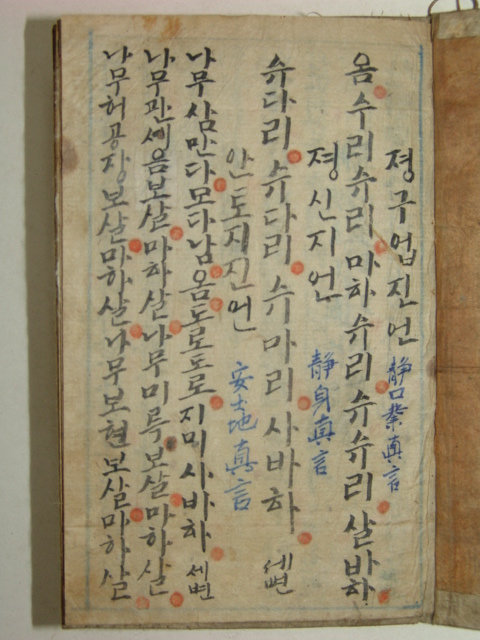 졍구업진언 静口業真言
옴 수리슈리 마하슈리 슈슈리 살바하
졍신지언 静身真言
슈다리 슈다리 슈마리 사바하 세번
안토지진언 安土地真言
나무삼만다모다남옴도로도로지미사바하 세번
나무관셰음보살마하살나무미륵보살마하살
나무허공장보살마하살나무보현보살마하살